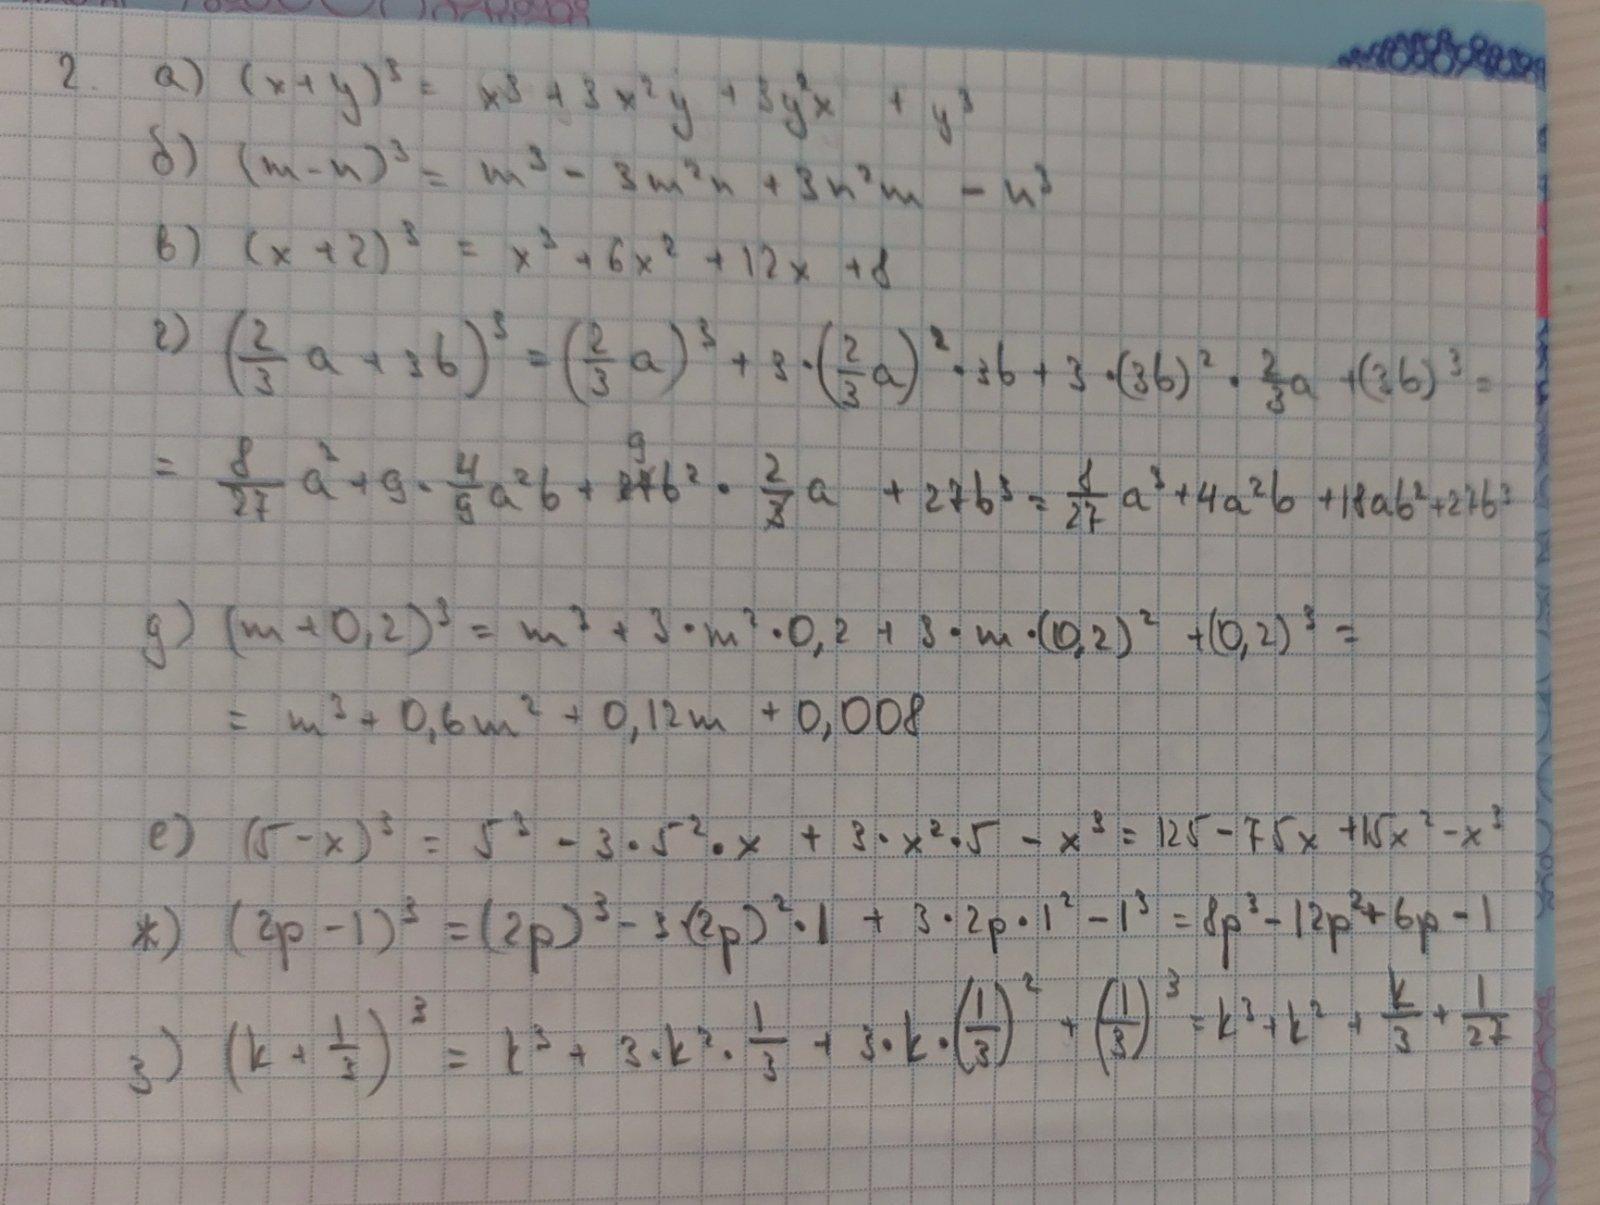 2. а) (x+y)³ = x³ + 3x²y + 3y²x + y³
б) (m-n)³ = m³ - 3m²n + 3n²m - n³
в) (x+2)³ = x³ + 6x² + 12x + 8
г) (2/3 a + 3b)³ = (2/3 a)³ + 3·(2/3 a)²·3b + 3·(3b)²·2/3 a + (3b)³ =
= 8/27 a² + 9·4/9 a²b + 27 9 b²·2/3 a + 27b³ = 8/27 a³ + 4a²b + 18ab² + 27b³
д) (m+0,2)³ = m³ + 3·m²·0,2 + 3·m·(0,2)² + (0,2)³ =
= m³ + 0,6m² + 0,12m + 0,008
е) (5-x)³ = 5³ - 3·5²·x + 3·x²·5 - x³ = 125 - 75x + 15x² - x³
ж) (2p-1)³ = (2p)³ - 3·(2p)²·1 + 3·2p·1² - 1³ = 8p³ - 12p² + 6p - 1
з) (k + 1/3)³ = k³ + 3·k²·1/3 + 3·k·(1/3)² + (1/3)³ = k³ + k² + k/3 + 1/27